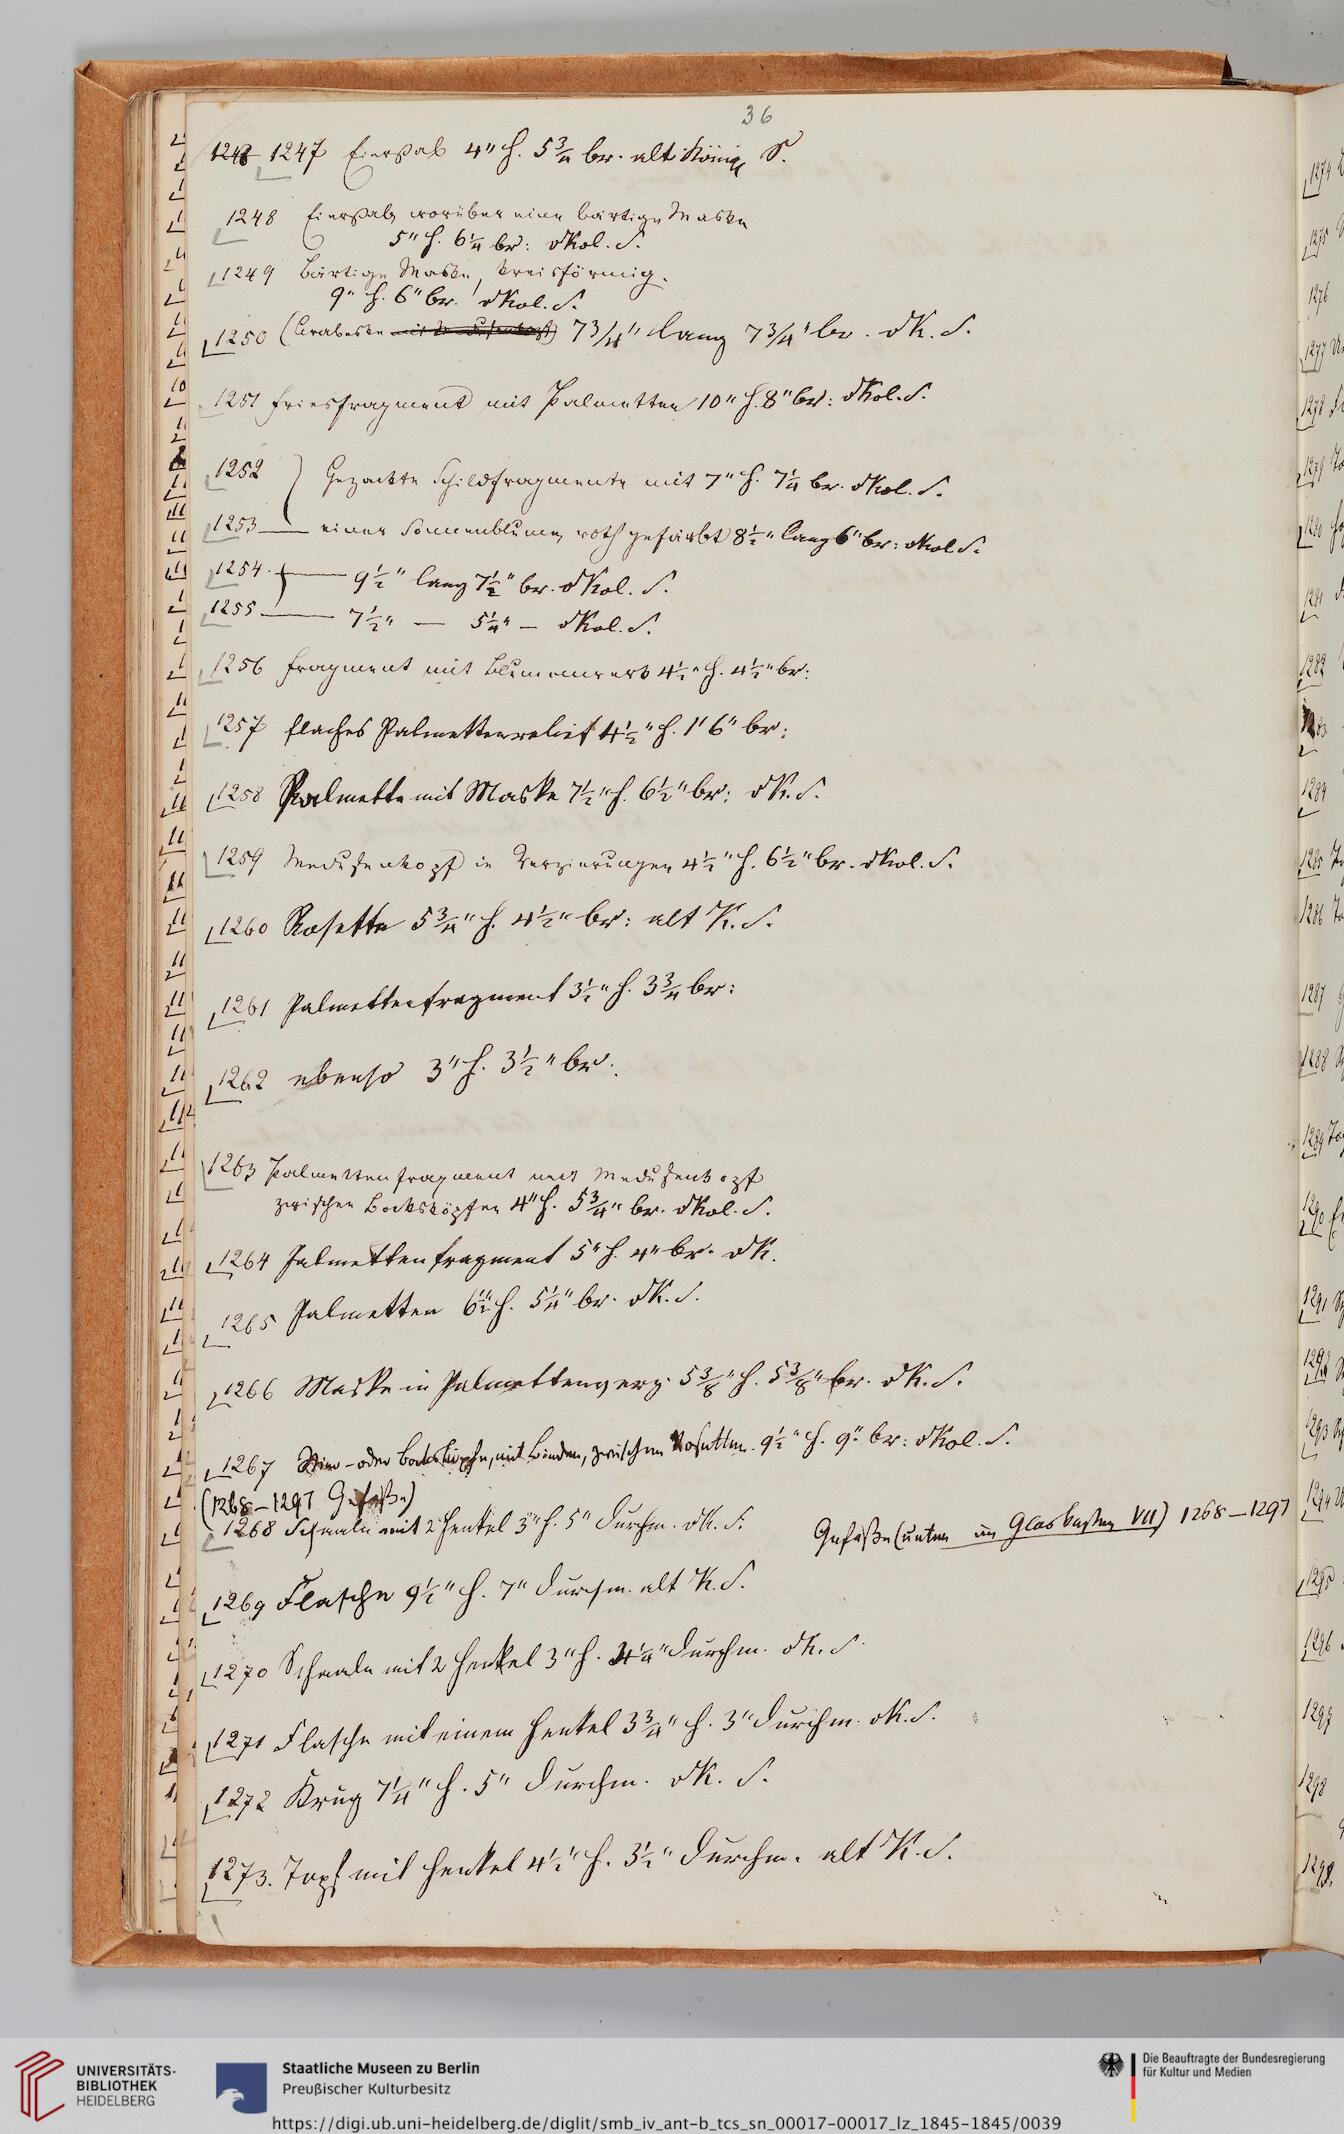 36
1248 1247 Eierstab 4" h. 5 3/4 br. alt Königl S.
1248 Eierstab worüber eine bärtige Maske
5" h. 6 1/4 br: dKöl. S.
1249 Bärtige Maske, kreisförmig.
9" h. 6" br. dKöl. S.
1250 (Arabeske mit Medusenkopf) 7 3/4" lang 7 3/4" br. dK. S.
1251 Friesfragment mit Palmetten 10" h. 8" br: dKöl. S.
1252 Gezackte Schildfragmente mit 7" h. 7 1/4 br. dKöl. S.
1253 — einer Sonnenblume, roth gefärbt 8 1/2" lang 6" br: dKöl S.
1254. — 9 1/2" lang 7 1/2" br. dKöl. S.
1255 — 7 1/2" — 5 1/4" — dKöl. S.
1256 Fragment mit Blumenwerk 4 1/2" h. 4 1/2" br:
1257 flaches Palmettenrelief 4 1/2" h. 1' 6" br:
1258 Palmette mit Maske 7 1/2" h. 6 1/2" br: dK. S.
1259 Medusenkopf in Verzierungen 4 1/2" h. 6 1/2" br. dKöl. S.
1260 Rosette 5 3/4" h. 4 1/2" br: alt K. S.
1261 Palmettenfragment 3 1/2" h. 3 3/4 br:
1262 ebenso 3" h. 3 1/2" br.
1263 Palmettenfragment mit Medusenkopf
zwischen Bocksköpfen 4" h. 5 3/4" br. dKöl. S.
1264 Palmettenfragment 5" h. 4" br. dK.
1265 Palmetten 6 1/2" h. 5 1/4" br. dK. S.
1266 Maske in Palmettenverz. 5 3/8" h. 5 3/8" br. dK. S.
1267 Stier- oder Bocksköpfe, mit Binden, zwischen Rosetten. 9 1/2" h. 9" br: dKöl. S.
(1268–1297 Gefäße)
1268 Schaale mit 2 Henkel 3" h. 5" Durchm. dK. S.
Gefäße (unten im Glaskasten VII) 1268–1297
1269 Flasche 9 1/2" h. 7" Durchm. alt K. S.
1270 Schaale mit 2 Henkel 3" h. 4 1/4" Durchm. dK. S.
1271 Flasche mit einem Henkel 3 3/4" h. 3" Durchm. dK. S.
1272 Krug 7 1/4" h. 5" Durchm. dK. S.
1273. Topf mit Henkel 4 1/2" h. 3 1/2" Durchm. alt K. S.
UNIVERSITÄTS-
BIBLIOTHEK
HEIDELBERG
Staatliche Museen zu Berlin
Preußischer Kulturbesitz
Die Beauftragte der Bundesregierung
für Kultur und Medien
https://digi.ub.uni-heidelberg.de/diglit/smb_iv_ant-b_tcs_sn_00017-00017_lz_1845-1845/0039